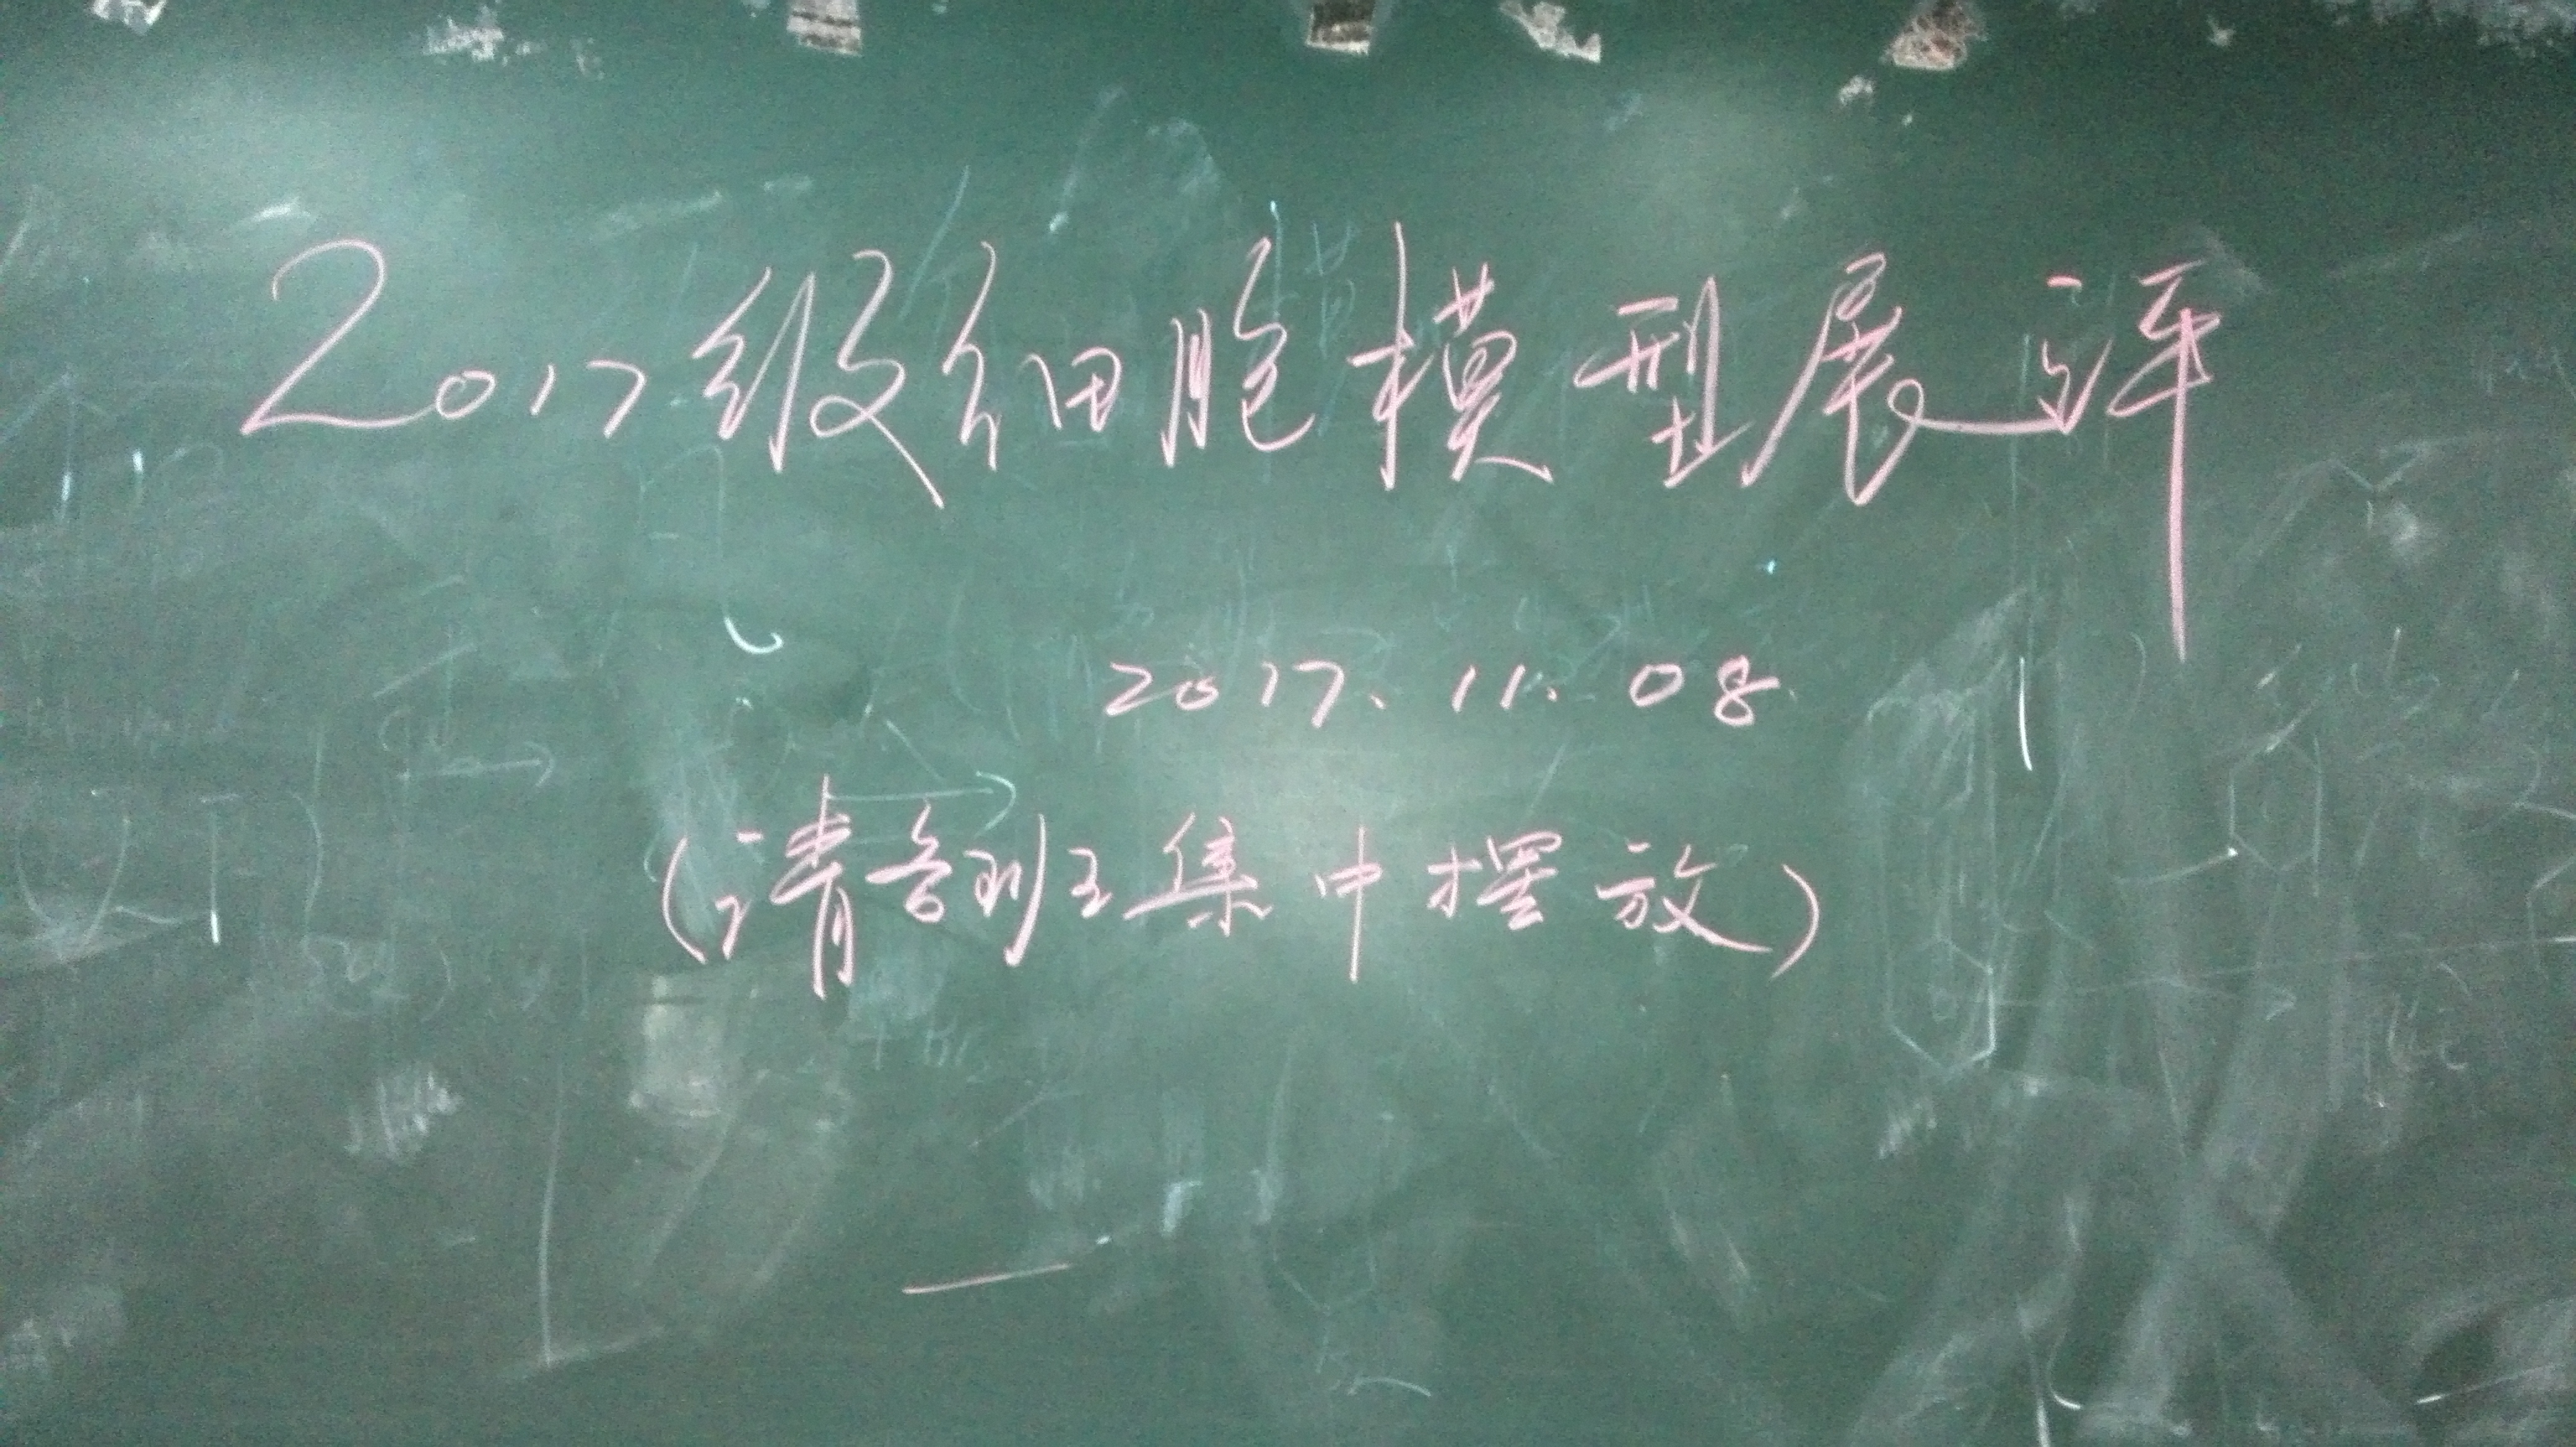 2017级细胞模型展评
2017.11.08
(请各班集中摆放)